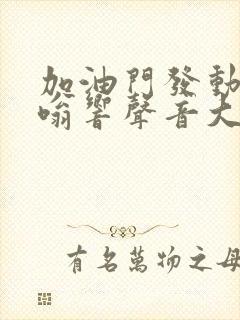 加油門發動
嗡響聲音大
有名萬物之母